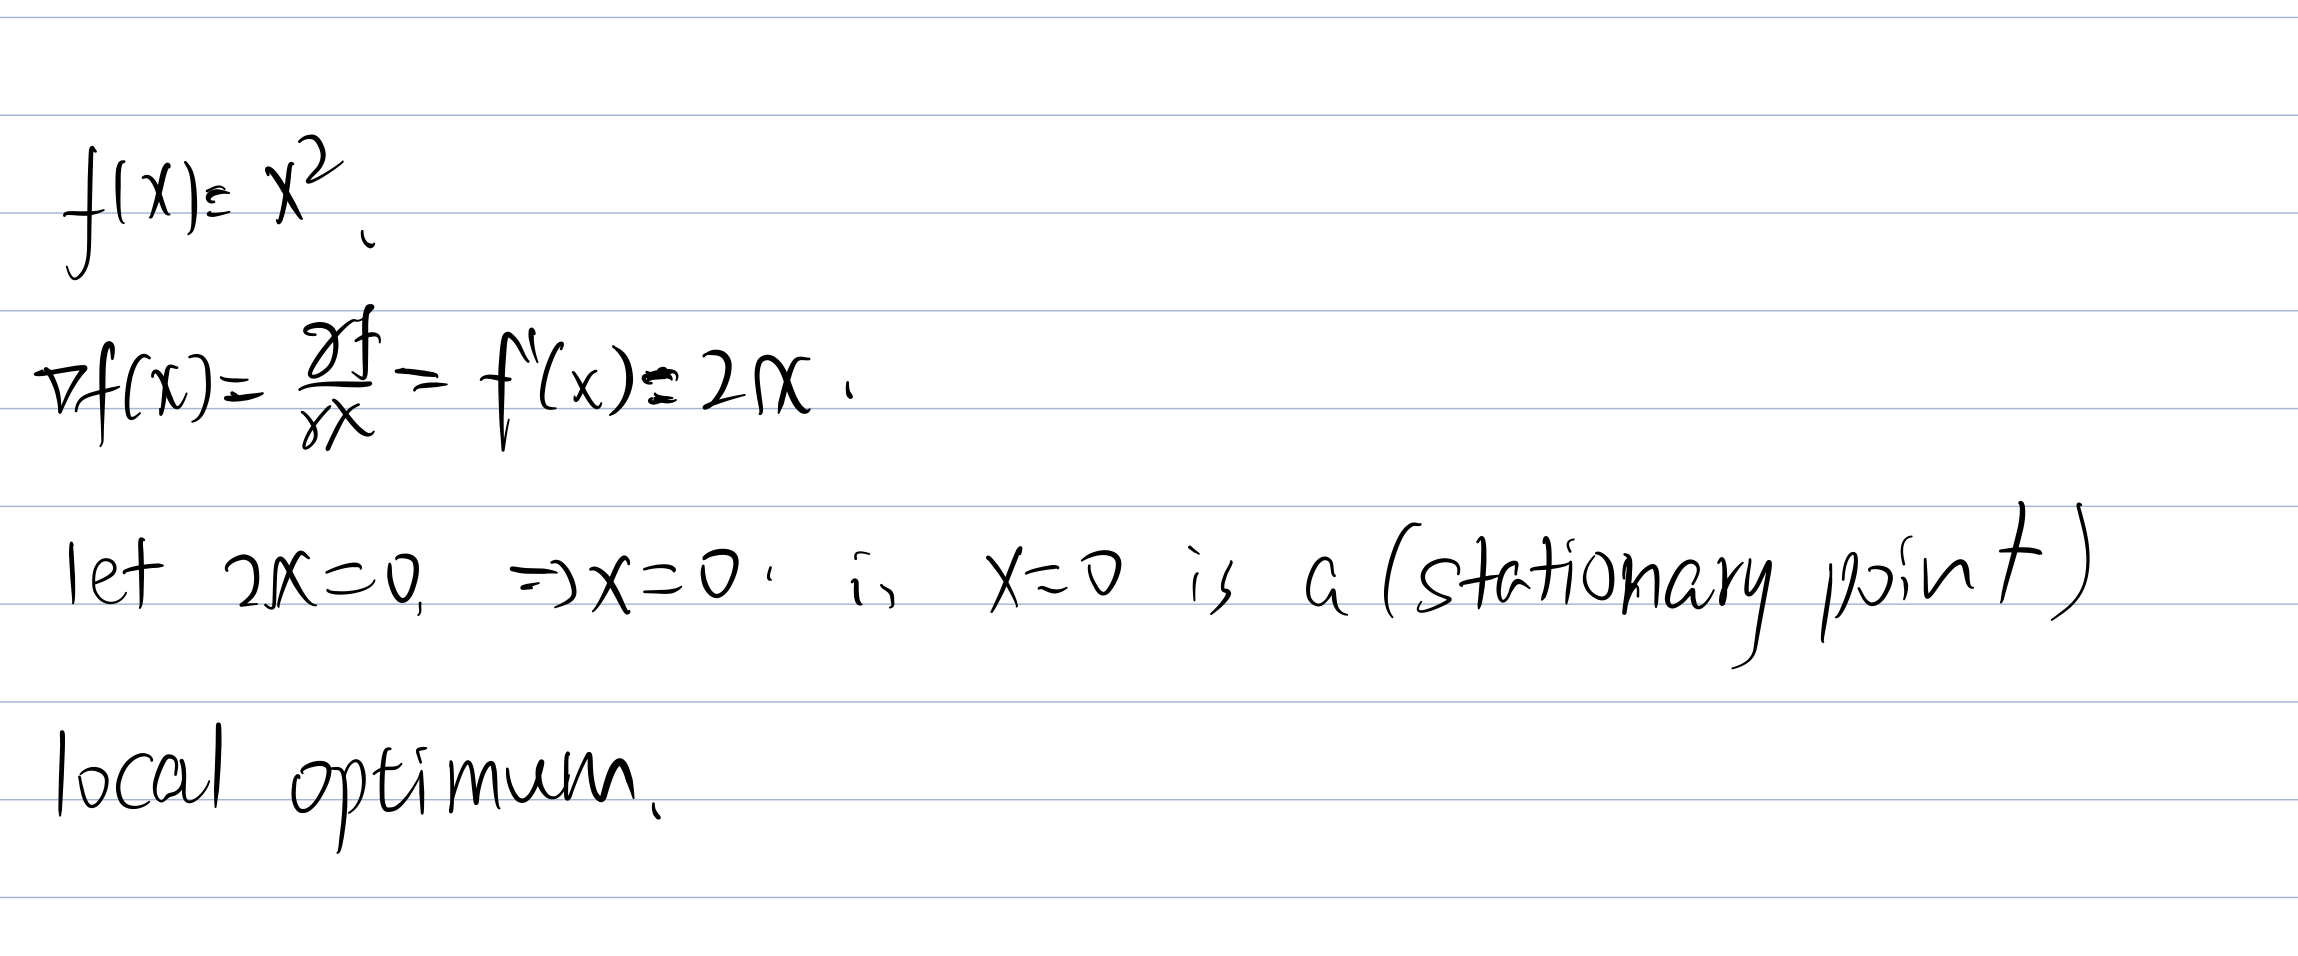 f(x) = x².
∇f(x) = ∂f/∂x = f'(x) = 2x.
let 2x=0, ⇒ x=0. ∴ x=0 is a (stationary point)
local optimum.